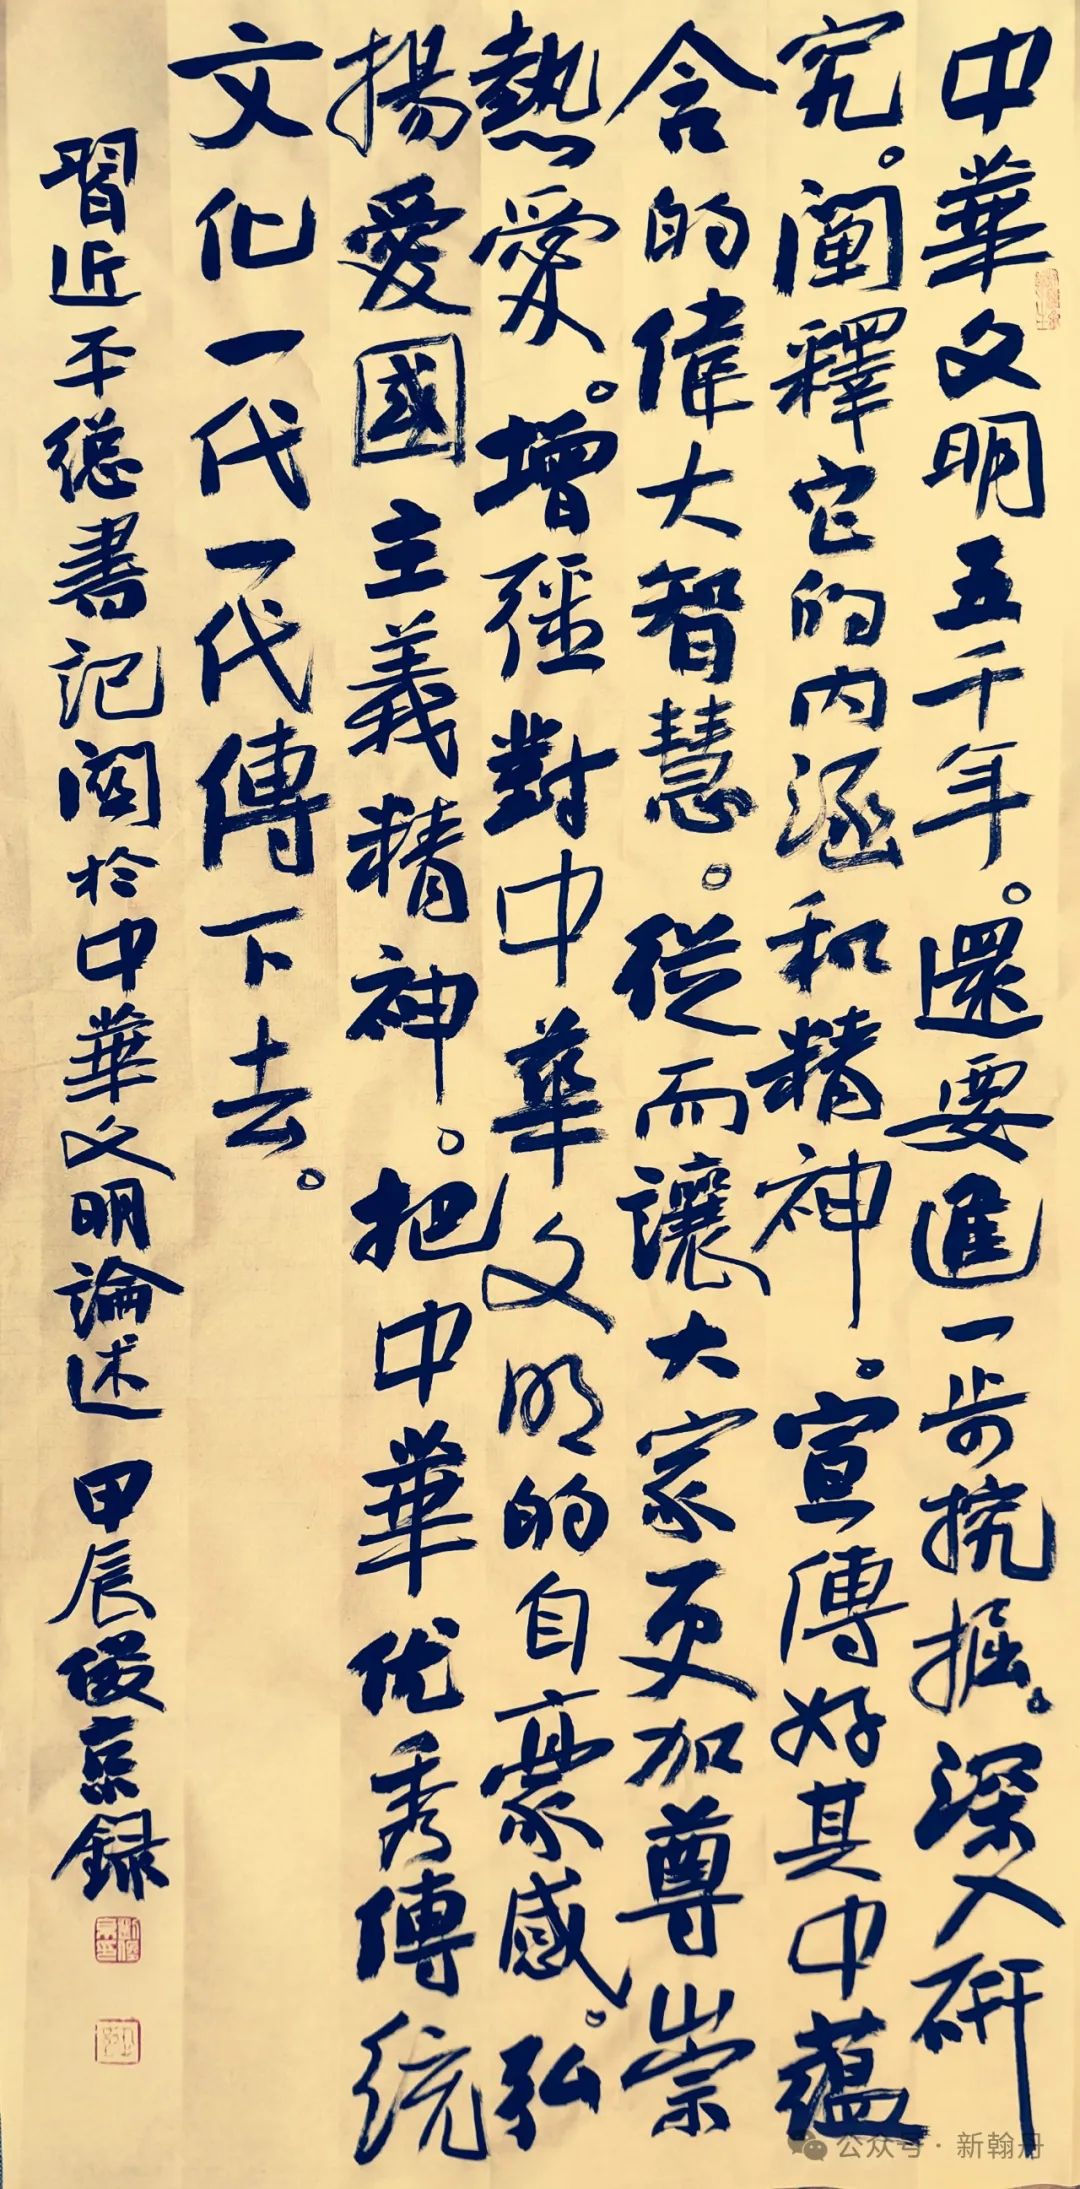 中華文明五千年。還要進一步挖掘。深入研
究。闡釋它的内涵和精神。宣傳好其中蘊
含的偉大智慧。從而讓大家更加尊崇
熱愛。增强對中華文明的自豪感。弘
揚愛國主義精神。把中華优秀傳統
文化一代一代傳下去。
習近平總書記関於中華文明論述 甲辰俊京録
公众号·新翰舟